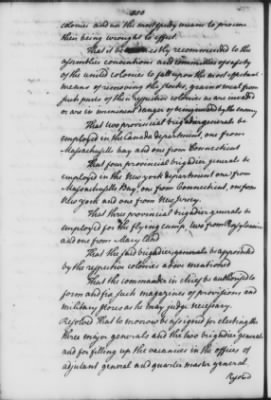 colonies and on the most speedy means to procure
their being brought to effect
That it be earnestly recommended to the
assemblies conventions and committees of safety
of the united colonies to fall upon the most effectual
means of removing the stocks, grain & meal from
such parts of their respective colonies as are invaded
or are in imminent danger of being invaded by the enemy
That two provincial brigadier generals be
employed in the Canada department, one from
Massachusetts bay and one from Connecticut
That four provincial brigadier generals be
employed in the New york department one from
Massachusetts Bay, one from Connecticut, one from
New york and one from New Jersey.
That three provincial brigadier generals be
employed for the flying camp, two from Pensylvania
and one from Maryland
That the said brigadier generals be appointed
by the respective colonies above mentioned
That the commander in chief be authorised to
form and fix such magazines of provisions and
military stores as he may judge necessary.
Resolved That to morrow be assigned for electing the
three major generals and the two brigadier generals
and for filling up the vacancies in the offices of
adjutant general and quarter master general
Resolved